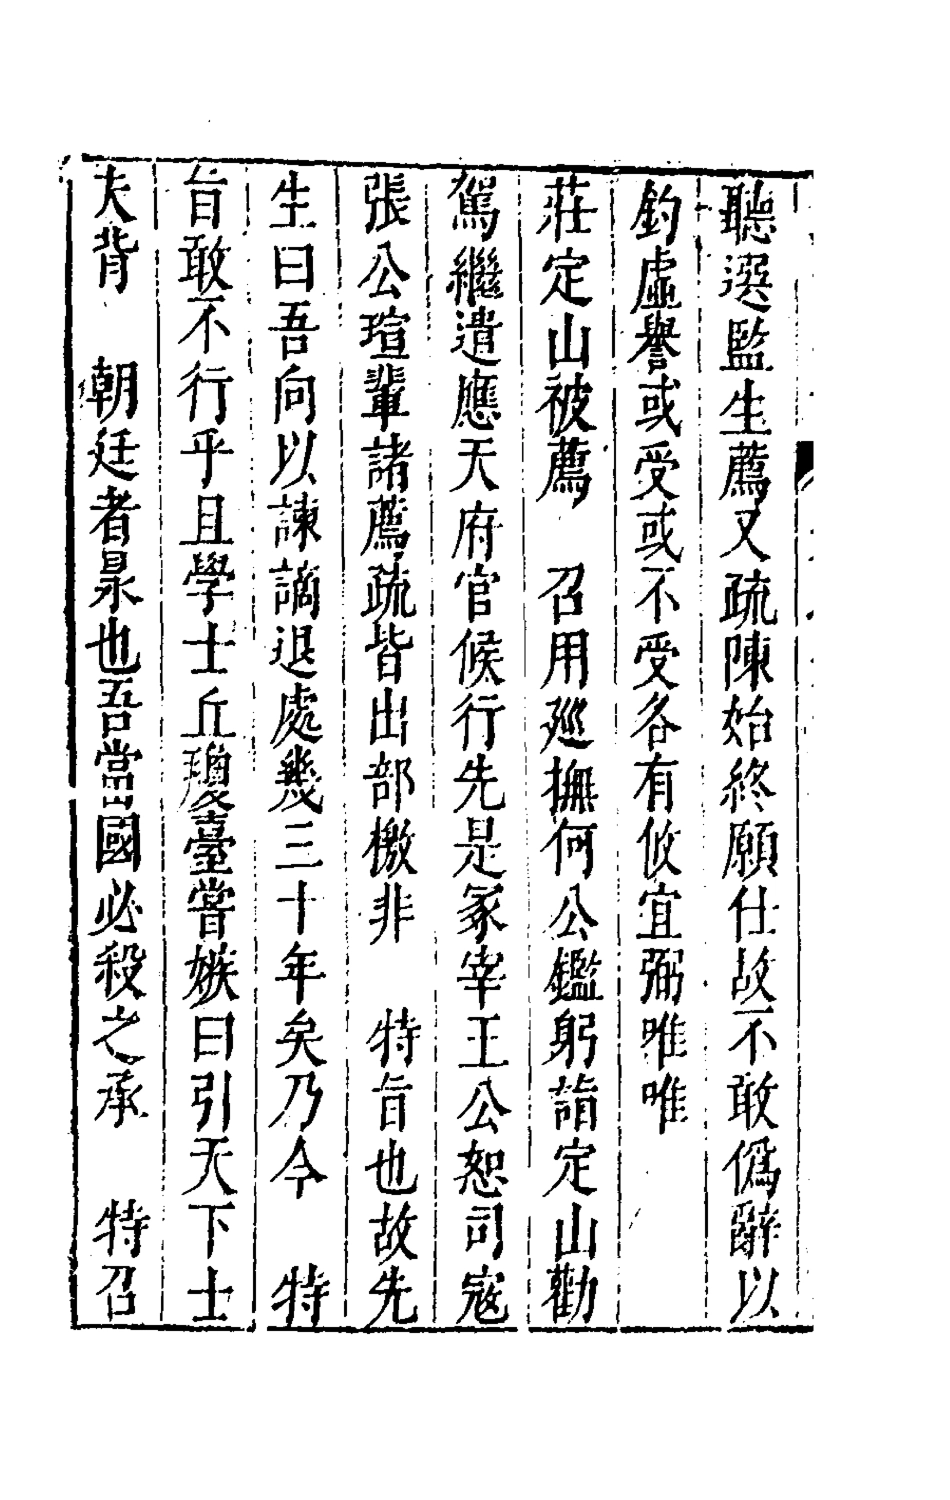 聽選監生薦又疏陳始終願仕故不敢僞辭以
釣虛譽或受或不受各有攸宜弼唯唯
莊定山被薦　召用廵撫何公鑑躬詣定山勸
駕繼遣應天府官候行先是冢宰王公恕司寇
張公瑄輩諸薦疏皆出部檄非　特旨也故先
生曰吾向以諫謫退處幾三十年矣乃今　特
旨敢不行乎且學士丘瓊臺嘗嫉曰引天下士
夫背　朝廷者㫤也吾當國必殺之承　特召